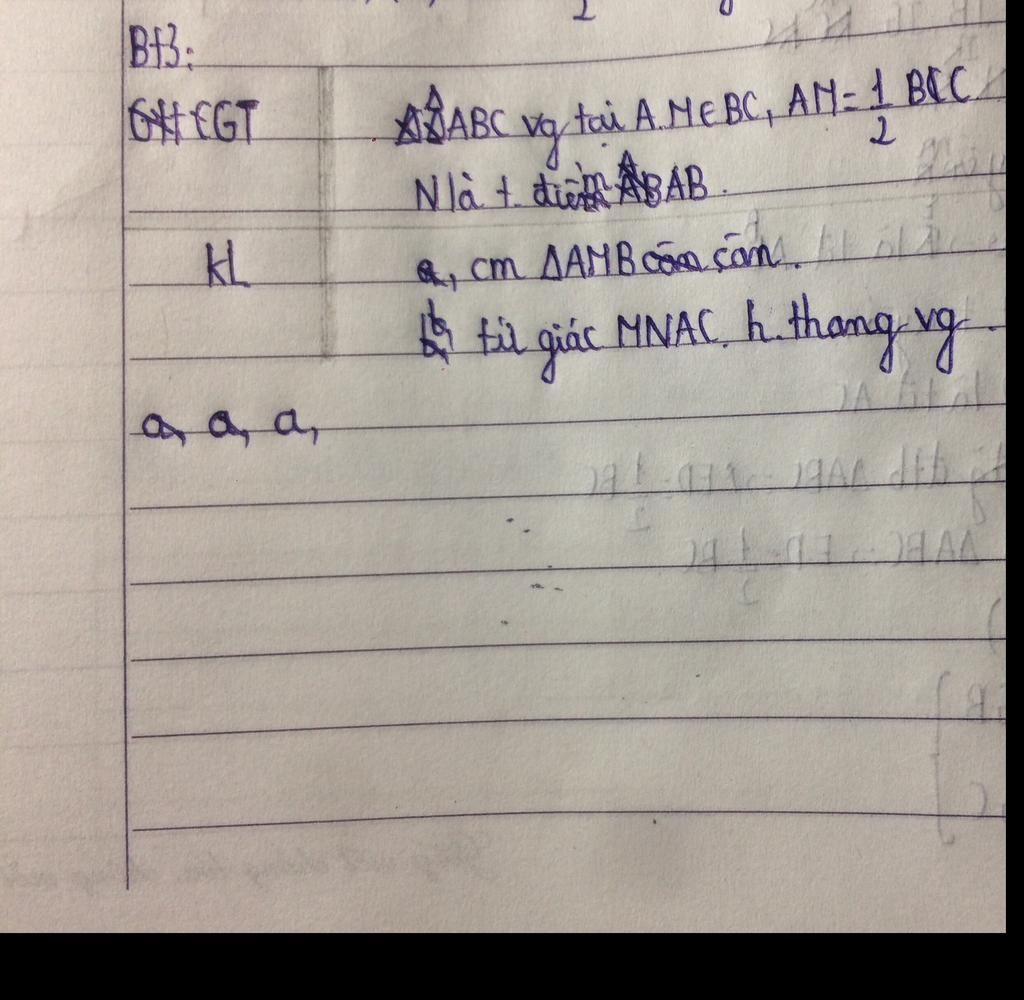 2
Bt3:
GT ΔABC vg tại A. M∈BC, AM = 1/2 BC
N là t. điểm AB.
KL a, cm ΔAMB cân.
b, tứ giác MNAC h. thang vg.
a, a, a,